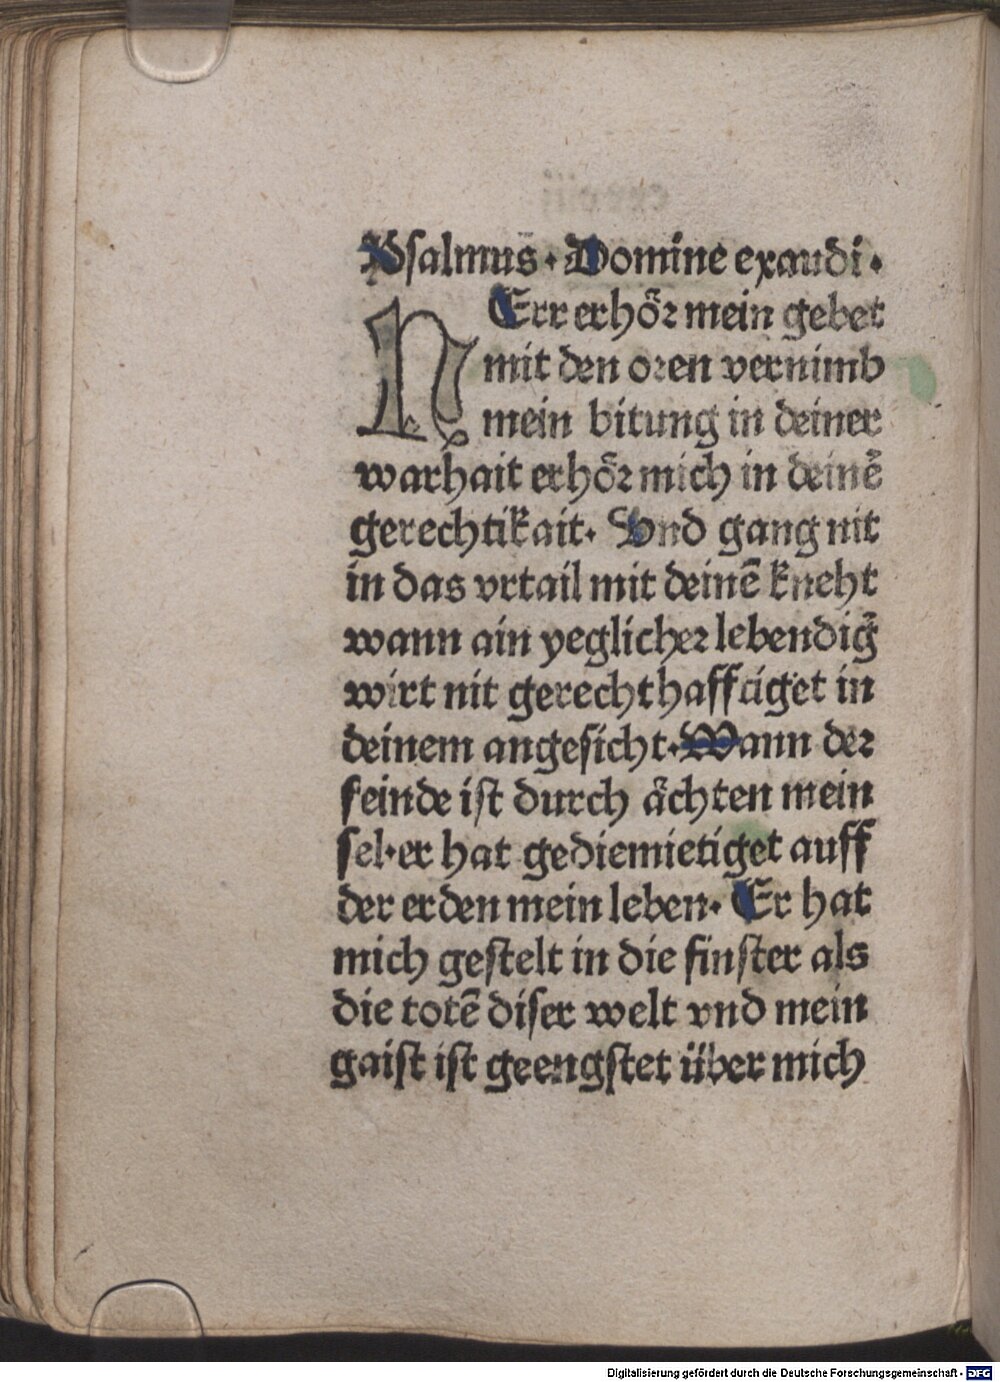 Psalmus · Domine exaudi ·
HErr erhör mein gebet
mit den oren vernimb
mein bitung in deiner
warhait erhör mich in deinē
gerechtikait · Vnd gang nit
in das vrtail mit deinē kneht
wann ain yeglicher lebendig̃
wirt nit gerechthafftiget in
deinem angesicht · Wann der
feinde ist durch ächten mein
sel · er hat gediemietiget auff
der erden mein leben · Er hat
mich gestelt in die finster als
die totē diser welt vnd mein
gaist ist geengstet über mich
Digitalisierung gefördert durch die Deutsche Forschungsgemeinschaft - DFG